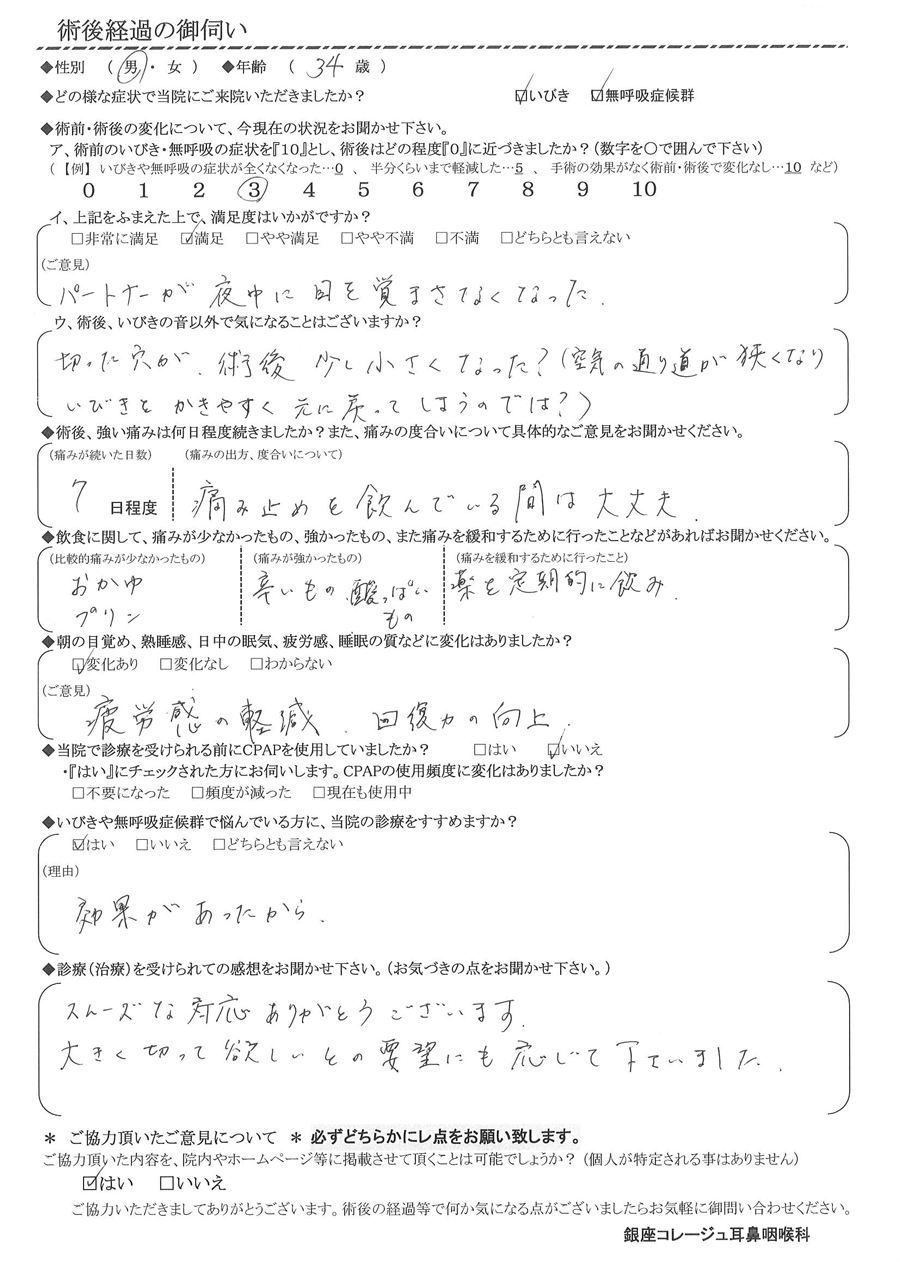 術後経過の御伺い
◆性別 （ 男 ・ 女 ） ◆年齢 （ 34 歳 ）
◆どの様な症状で当院にご来院いただきましたか？ ☑いびき ☑無呼吸症候群
◆術前・術後の変化について、今現在の状況をお聞かせ下さい。
ア、術前のいびき・無呼吸の症状を『10』とし、術後はどの程度『0』に近づきましたか？（数字を〇で囲んで下さい）
（【例】 いびきや無呼吸の症状が全くなくなった…0 、 半分くらいまで軽減した…5 、 手術の効果がなく術前・術後で変化なし…10 など）
0 1 2 3 4 5 6 7 8 9 10
イ、上記をふまえた上で、満足度はいかがですか？
□非常に満足 ☑満足 □やや満足 □やや不満 □不満 □どちらとも言えない
（ご意見）
パートナーが夜中に目を覚まさなくなった．
ウ、術後、いびきの音以外で気になることはございますか？
切った穴が、術後 少し小さくなった？（空気の通り道が狭くなり
いびきを かきやすく 元に戻って しまうのでは？）
◆術後、強い痛みは何日程度続きましたか？また、痛みの度合いについて具体的なご意見をお聞かせください。
（痛みが続いた日数） （痛みの出方、度合いについて）
7 日程度 痛み止めを飲んでいる間は大丈夫．
◆飲食に関して、痛みが少なかったもの、強かったもの、また痛みを緩和するために行ったことなどがあればお聞かせください。
（比較的痛みが少なかったもの） （痛みが強かったもの） （痛みを緩和するために行ったこと）
おかゆ 辛いもの 酸っぱい 薬を定期的に飲み．
プリン もの
◆朝の目覚め、熟睡感、日中の眠気、疲労感、睡眠の質などに変化はありましたか？
☑変化あり □変化なし □わからない
（ご意見）
疲労感の軽減． 回復力の向上．
◆当院で診療を受けられる前にCPAPを使用していましたか？ □はい ☑いいえ
・『はい』にチェックされた方にお伺いします。CPAPの使用頻度に変化はありましたか？
□不要になった □頻度が減った □現在も使用中
◆いびきや無呼吸症候群で悩んでいる方に、当院の診療をすすめますか？
☑はい □いいえ □どちらとも言えない
（理由）
効果があったから．
◆診療（治療）を受けられての感想をお聞かせ下さい。（お気づきの点をお聞かせ下さい。）
スムーズな対応ありがとうございます．
大きく切って欲しいとの要望にも応じて下さいました．
＊ ご協力頂いたご意見について ＊ 必ずどちらかにレ点をお願い致します。
ご協力頂いた内容を、院内やホームページ等に掲載させて頂くことは可能でしょうか？（個人が特定される事はありません）
☑はい □いいえ
ご協力いただきましてありがとうございます。術後の経過等で何か気になる点がございましたらお気軽に御問い合わせください。
銀座コレージュ耳鼻咽喉科